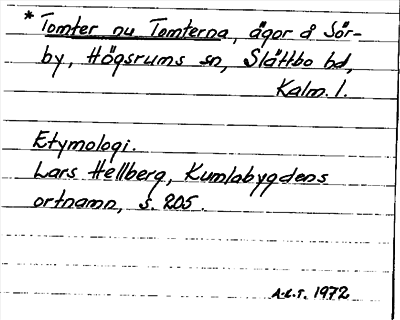 * Tomter nu Tomterna, ägor å Sör-
by, Högsrums sn, Slättbo hd,
Kalm. l.
Etymologi.
Lars Hellberg, Kumlabygdens
ortnamn, s. 205.
A.C.T. 1972